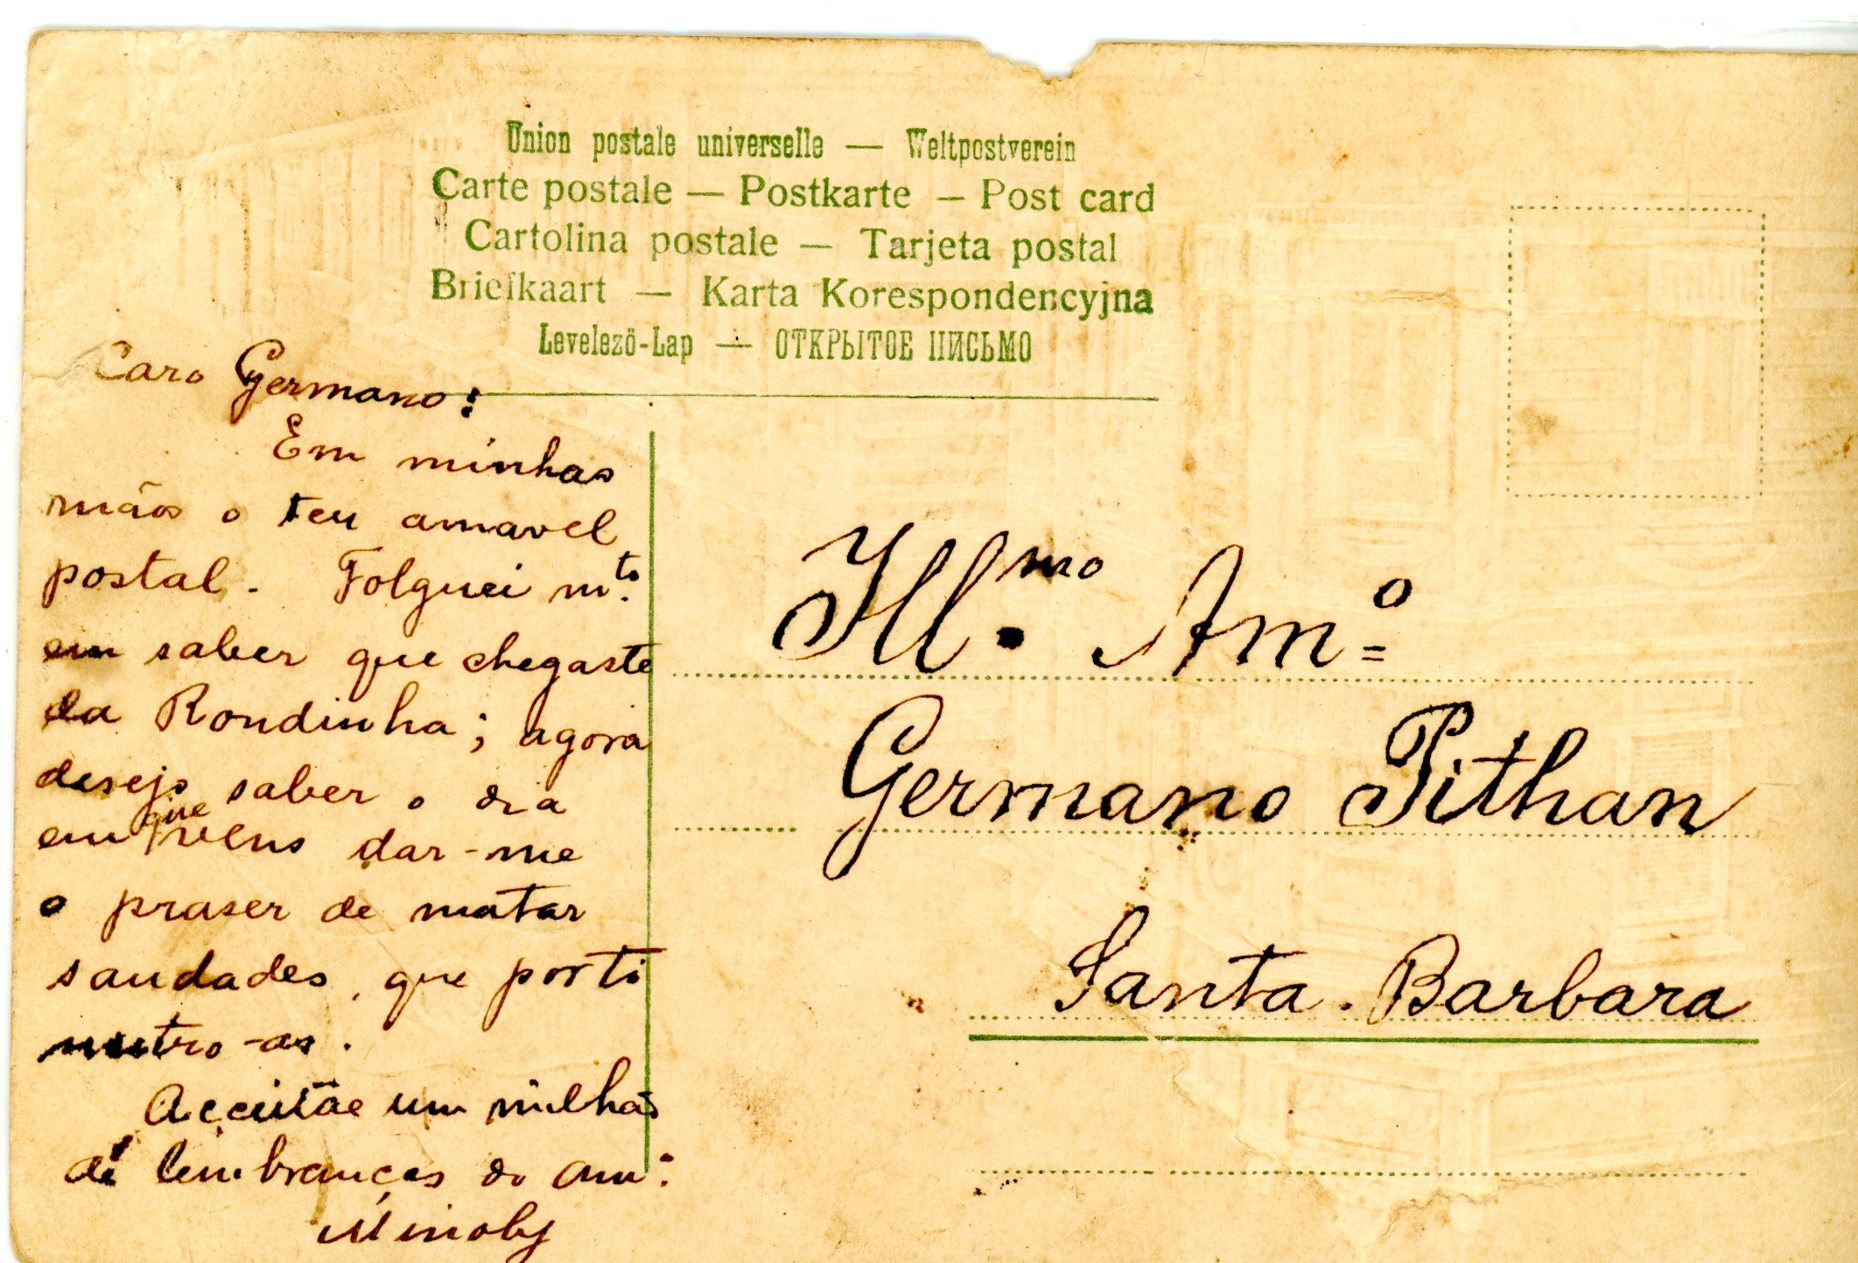 Union postale universelle — Weltpostverein
Carte postale — Postkarte — Post card
Cartolina postale — Tarjeta postal
Briefkaart — Karta Korespondencyjna
Levelező-Lap — ОТКРЫТОЕ ПИСЬМО
Caro Germano:
Em minhas
mãos o teu amavel
postal. Folguei m.to
em saber que chegaste
da Rondinha; agora
desejo saber o dia
em que vens dar-me
o praser de matar
saudades, que por ti
nutro-as.
um milhão
de lembranças do am.o
Ill.mo Am.o
Germano Pithan
Santa. Barbara